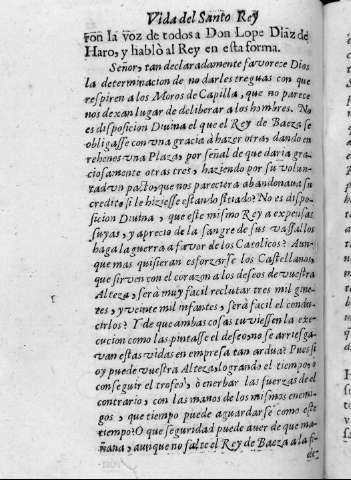 Vida del Santo Rey
con la voz de todos à Don Lope Diaz de
Haro, y hablò al Rey en esta forma.
Señor, tan declaradamente favorece Dios
la determinacion de no darles treguas con que
respiren a los Moros de Capilla, que no parece
nos dexan lugar de deliberar a los hombres. No
es disposicion Divina el que el Rey de Baeza se
obligasse con vna gracia à hazer otra, dando en
rehenes vna Plaza, por señal de que daria gra-
ciosamente otras tres, haziendo por su volun-
tad vn pacto, que nos pareciera abandonava su
credito si le hiziesse estando sitiado? No es dispo-
sicion Divina, que este mismo Rey a expensas
suyas, y aprecio de la sangre de sus vassallos
haga la guerra a favor de los Catolicos? Aun-
que mas quisieran esforzarse los Castellanos,
que sirven con el corazon a los deseos de vuestra
Alteza, serà muy facil reclutar tres mil gine-
tes, y veinte mil infantes, serà facil el condu-
cirlos? Y de que ambas cosas tuviessen la exe-
cucion como las pintasse el deseo, no se arriesga-
van estas vidas en empresa tan ardua? Pues si
oy puede vuestra Alteza, logrando el tiempo, ò
conseguir el trofeo, ò enerbar las fuerzas de el
contrario, con las manos de los mismos enemi-
gos, que tiempo puede aguardarse como este
tiempo? O que seguridad puede aver de que ma-
ñana, aunque no falte el Rey de Baeza a la fi-
de-